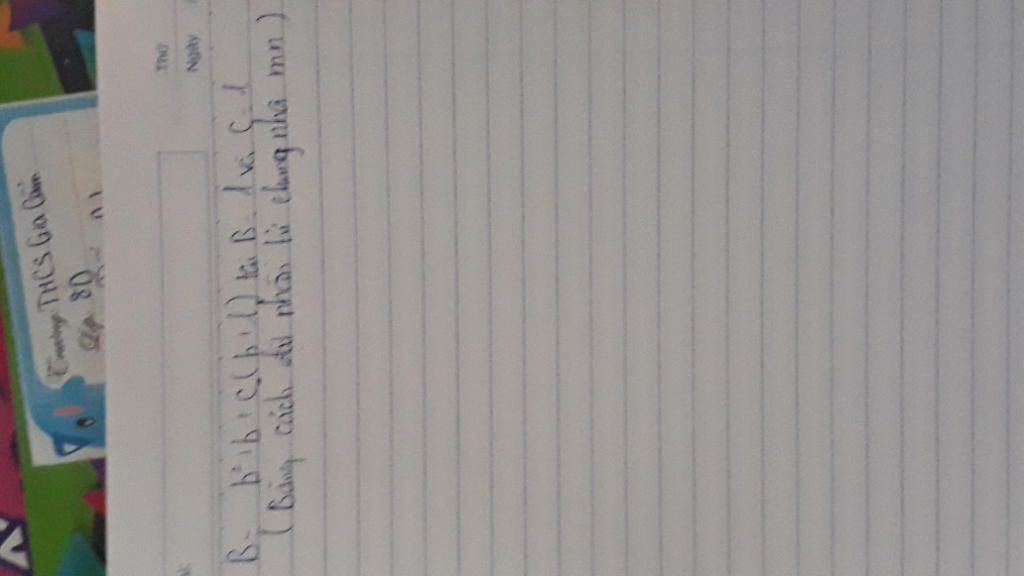 Trường THCS Gia Cẩm
Lớp 8D
Thứ
Ngày
B = b² + b + c(b + 1) tại B = 1 và C = 1
(Bằng cách đặt nhân tử chung nha mn)